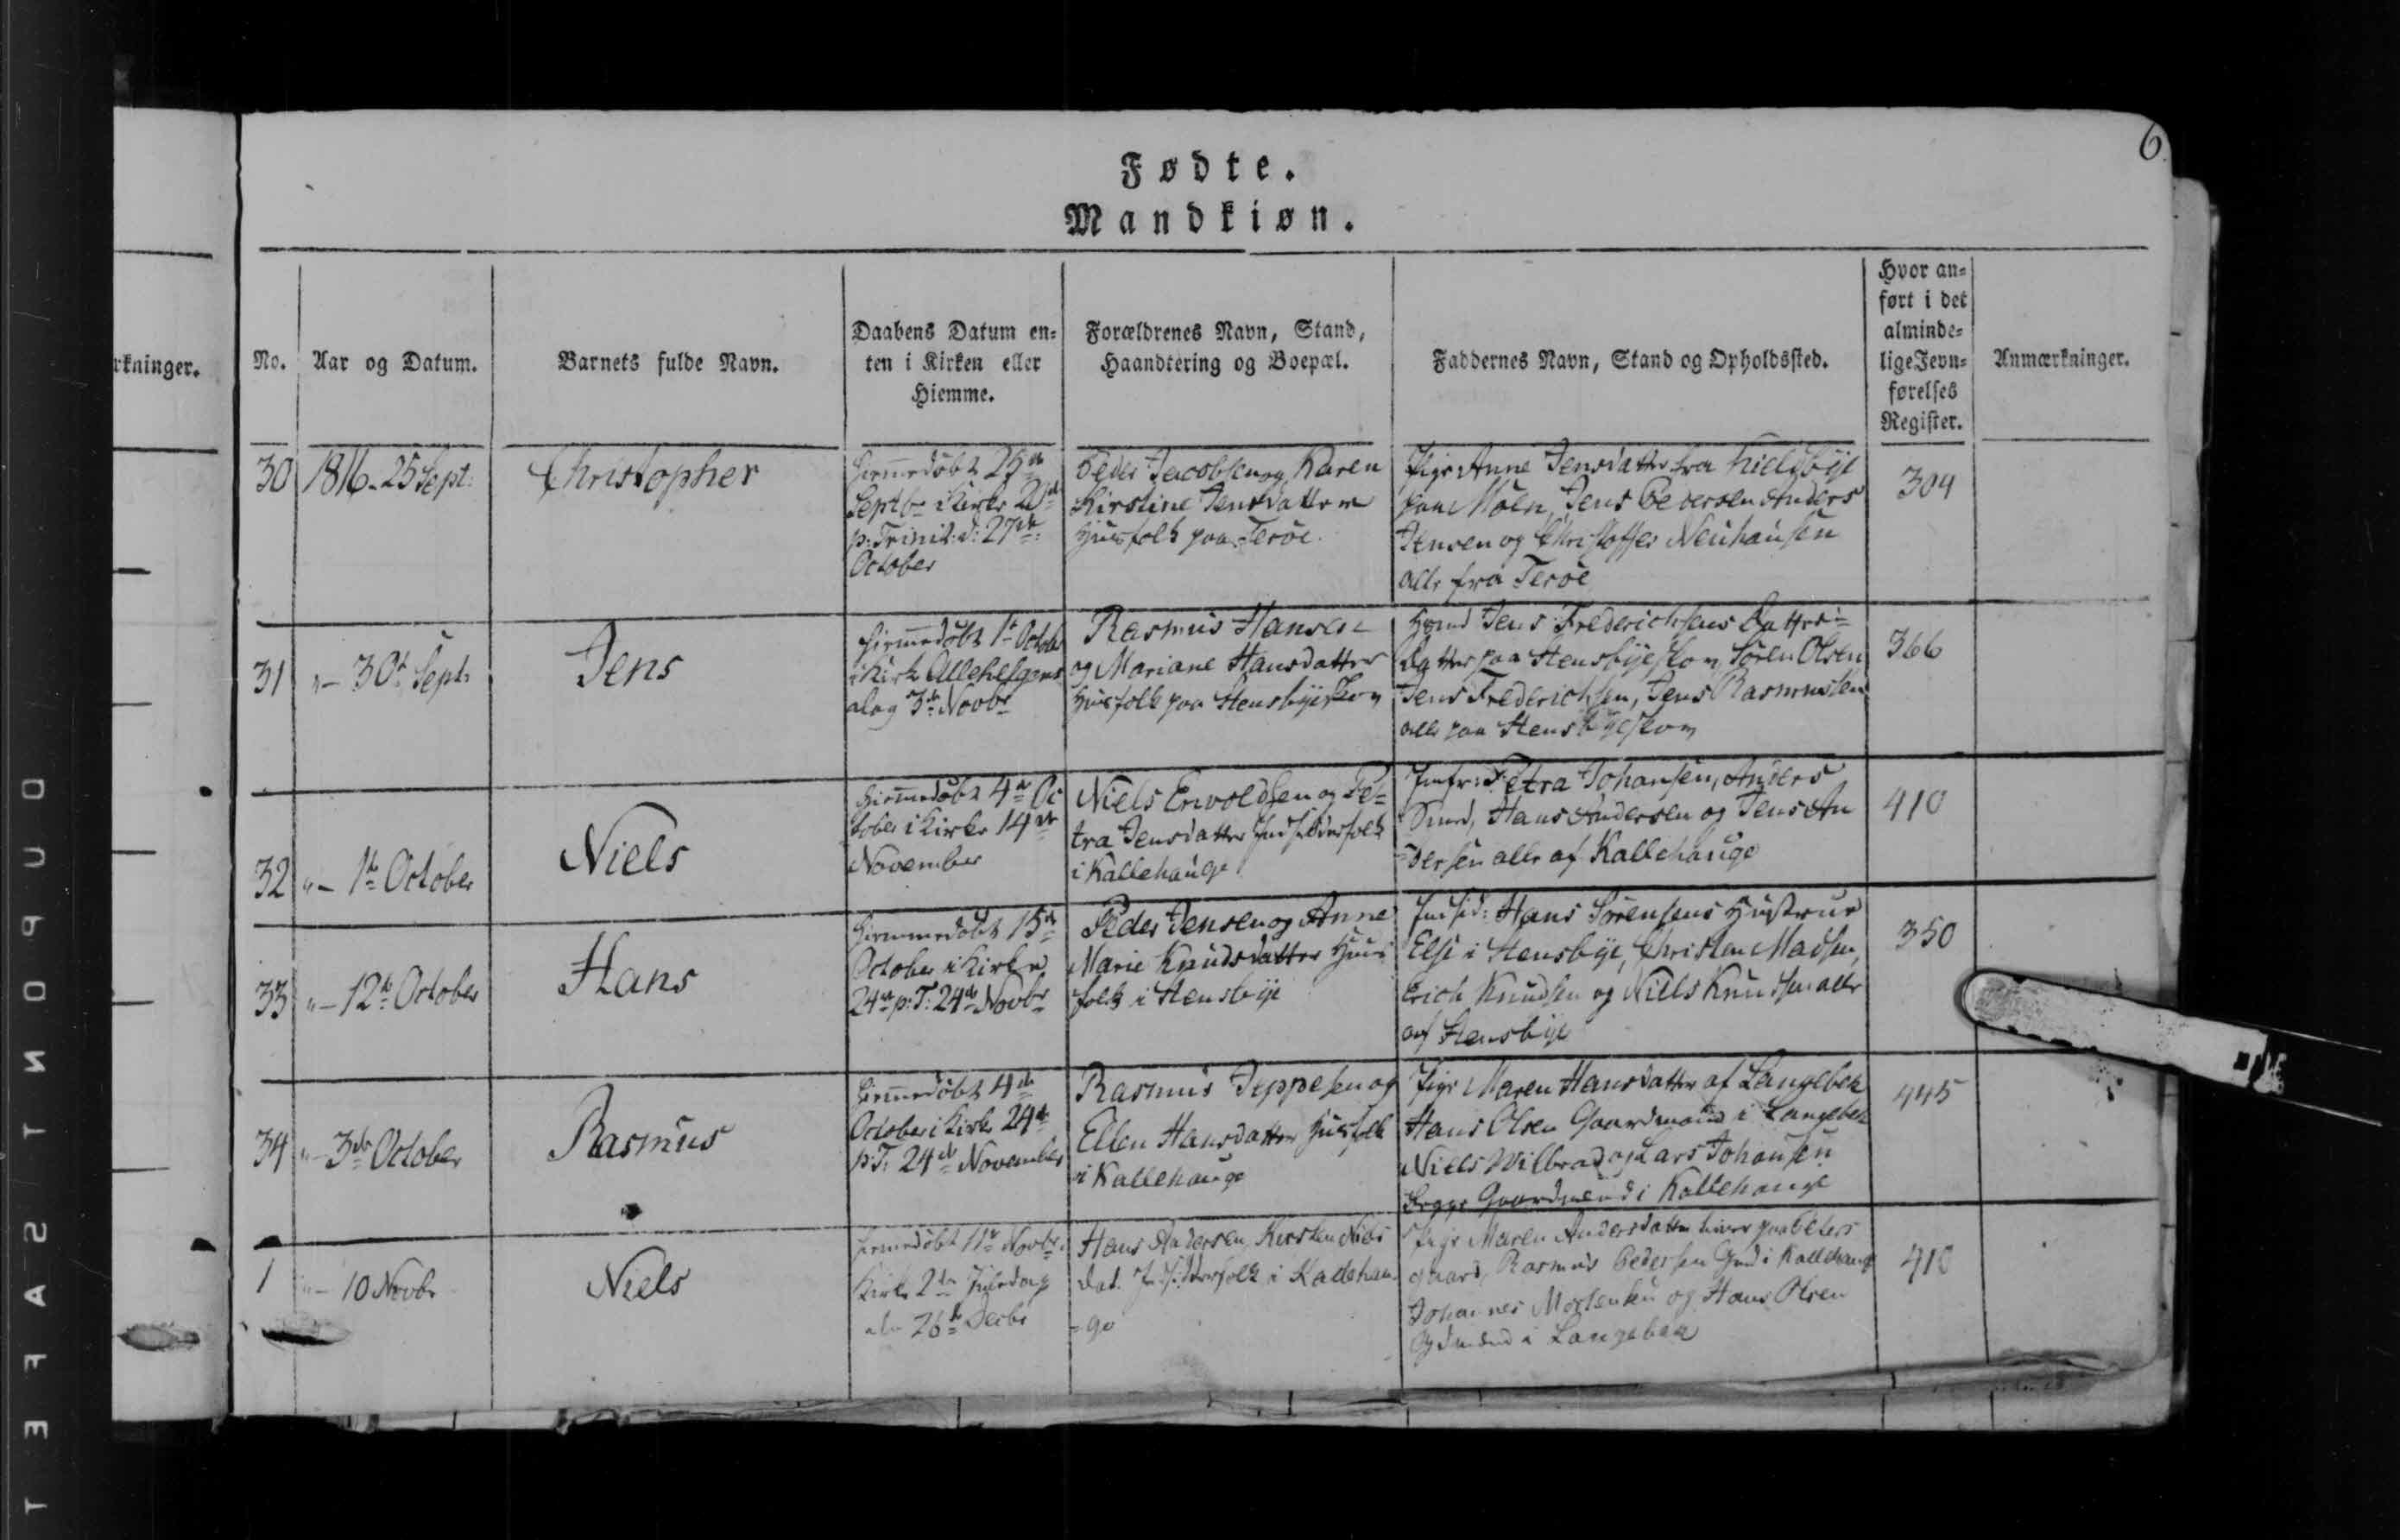 6.
Fødte.
Mandkiøn.
rkninger.
No.
Aar og Datum.
Barnets fulde Navn.
Daabens Datum en=
ten i Kirken eller
Hiemme.
Forældrenes Navn, Stand,
Haandtering og Boepæl.
Faddernes Navn, Stand og Opholdssted.
Hvor an=
ført i det
alminde=
lige Jevn=
førelses
Register.
Anmærkninger.
30
1816 - 25 Sept:
Christopher
hiemmedøbt 25de
Septbr i Kirke 20de
p: Trinit: d: 27de
October
Peder Jacobsen og Karen
Kirstine Jensdatter
Huusfolk paa Terøe.
Pige Anne Jensdatter fra Kieldbÿe
paa Møen, Jens Pedersen Anders
Jensen og Christoffer Neuhausen
alle fra Terøe
304
31
" - 30t Sept:
Jens
hiemmedøbt 1t Octobr
i Kirk Allehelgens
dag 3de Novbr
Rasmus Hansen
og Mariane Hansdatter
Huusfolk paa Stensbÿeskov
Jens Frederichsens Datter=
Datter paa Stensbÿeskov, Søren Olsen
Jens Frederichsen, Jens Rasmussen
alle paa Stensbÿeskov
366
32
" - 1te October
Niels
hiemmedøbt 4de Oc
tober i Kirke 14de
November
Niels Envoldsen og Pe=
tra Jensdatter Indsidderfolk
i Kallehauge
Jomfr: Petra Johansen, Anders
Smed, Hans Andersen og Jens An
=dersen alle af Kallehauge
410
33
" - 12te October
Hans
hiemmedøbt 15de
October i Kirke
24de p: T: 24de Novbr
Peder Jensen og Anne
Marie Knudsdatter Huus
folk i Stensbÿe
Indsid: Hans Sørensens Hustrue
Else i Stensbÿe, Christen Madsen,
Erich Knudsen og Niels Knudsen alle
af Stensbÿe
350
34
" - 3de October
Rasmus
hiemmedøbt 4de
October i Kirke 24de
p: T: 24de November
Rasmus Jeppesen og
Ellen Hansdatter Huusfolk
i Kallehauge
Pige Maren Hansdatter af Langebek
Hans Olsen Gaardmand i Langebek
Niels Wilbrad og Lars Johansen
Gaardmænd i Kallehauge
445
1
" - 10 Novbr
Niels
hiemmedøbt 11te Novbr i
Kirke 2den Juledag
den 26de Decbr
Hans Andersen, Kirsten Niels
dat. Indsidderfolk i Kallehau
=ge
Pige Maren Andersdatter paa Peters
gaard, Rasmus Pedersen Gmd i Kallehauge
Johannes Mortensen og Hans Olsen
Gdmænd i Langebek
410
DUPONT SAFET